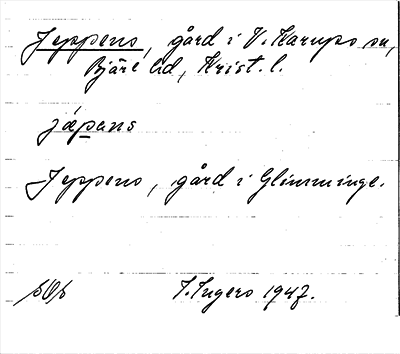 Jeppens, gård i V. Karups sn,
Bjäre hd, Krist. l.
jäpens
Jeppens, gård i Glimminge.
I. Ingers 1947.